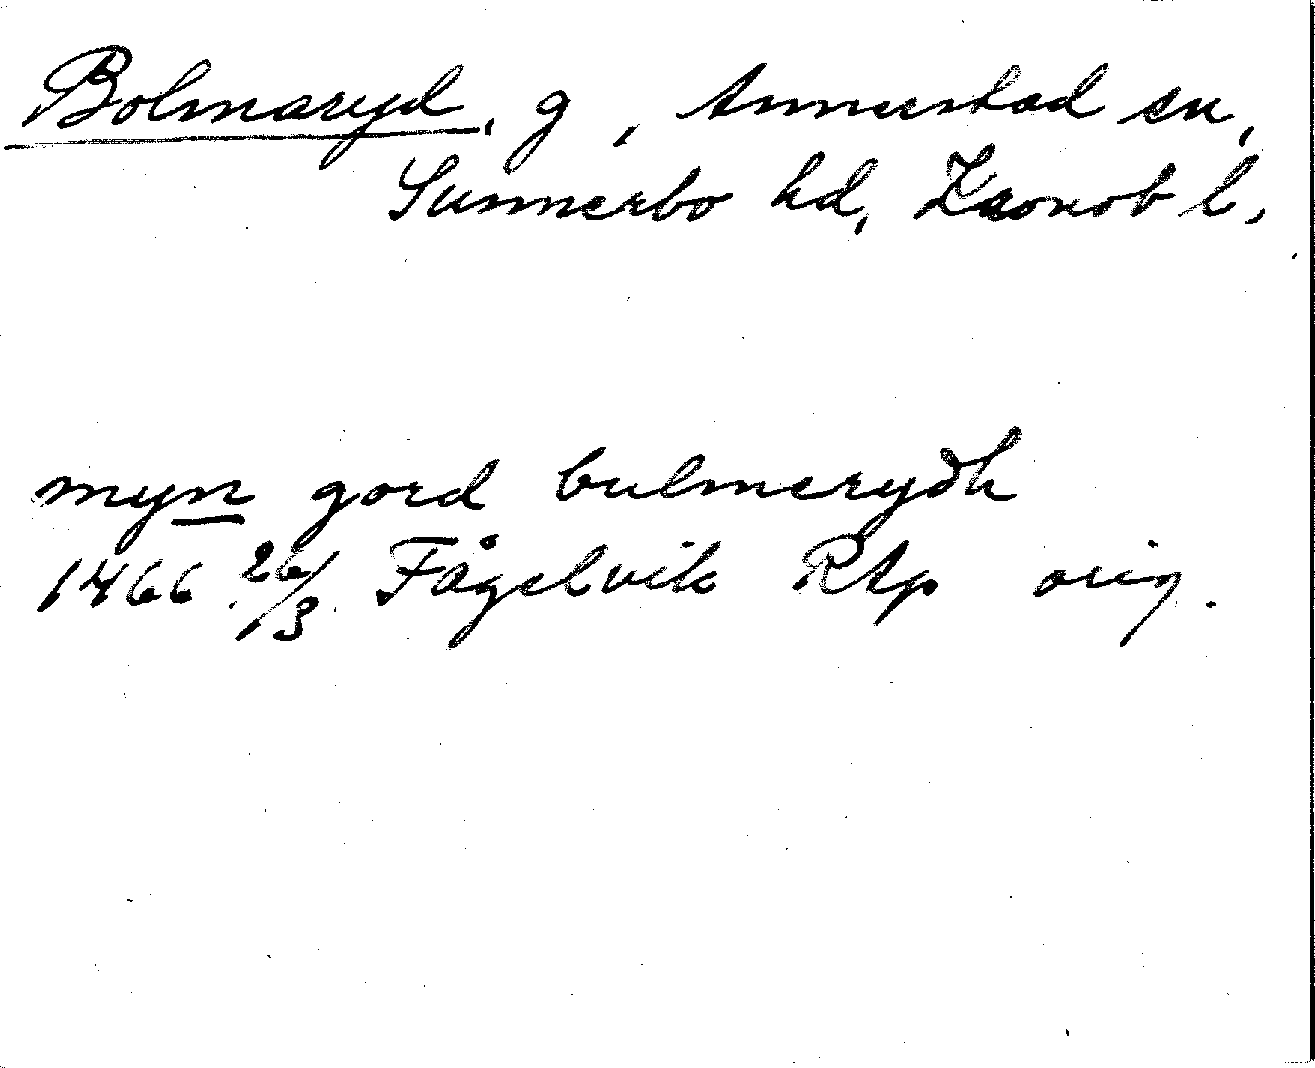 Bolmaryd, g, Annerstad sn,
Sunnerbo hd, Kronob l,
myn gord bulmerydh
1466 26/3 Fågelvik Rtp orig.